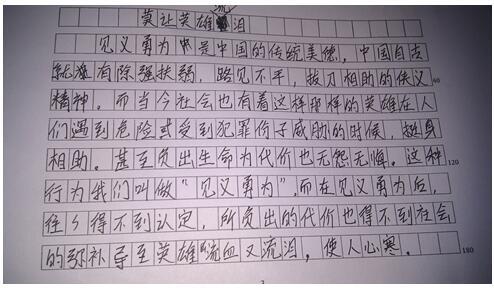 莫让英雄流泪
见义勇为是中国的传统美德，中国自古
就有除强扶弱，路见不平，拔刀相助的侠义
精神。而当今社会也有着这样那样的英雄在人 60
们遇到危险或受到犯罪份子威胁的时候，挺身
相助。甚至负出生命为代价也无怨无悔。这种 120
行为我们叫做“见义勇为”，而在见义勇为后，
往々得不到认定，所负出的代价也得不到社会
的弥补导至英雄流血又流泪，使人心寒。 180